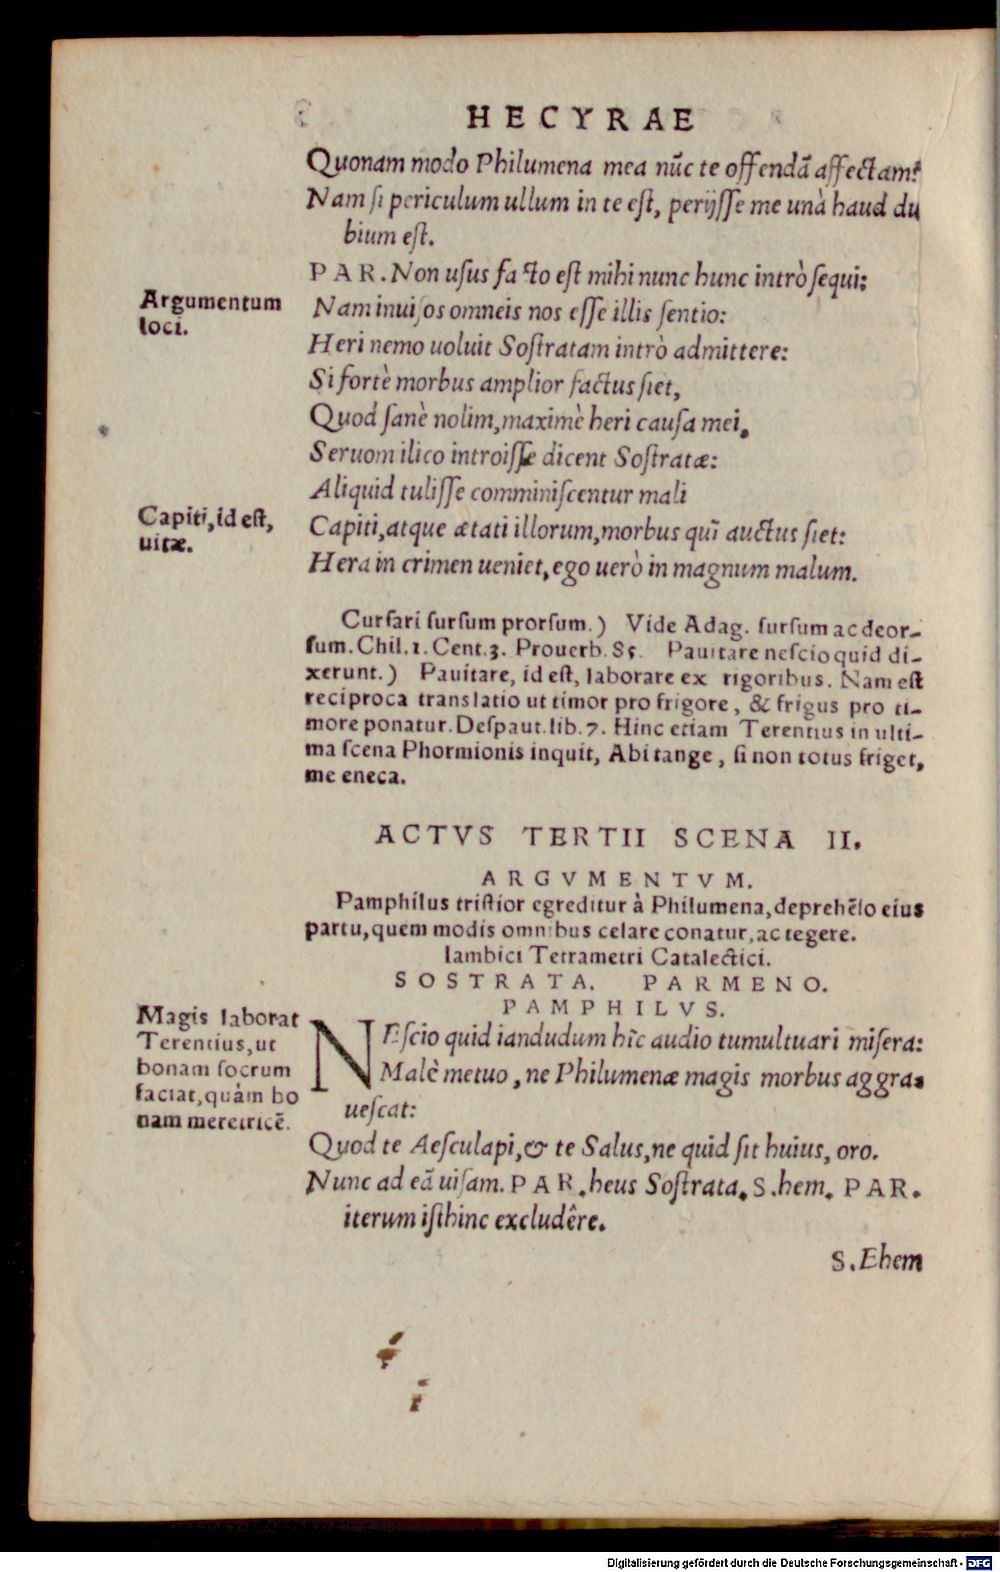 HECYRAE
Quonam modo Philumena mea nūc te offendā affectam?
Nam si periculum ullum in te est, perijsse me unà haud du
bium est.
PAR. Non usus facto est mihi nunc hunc intrò sequi:
Argumentum
loci.
Nam inuisos omneis nos esse illis sentio:
Heri nemo uoluit Sostratam intrò admittere:
Si fortè morbus amplior factus siet,
Quod sanè nolim, maximè heri causa mei,
Seruom ilico introisse dicent Sostratæ:
Aliquid tulisse comminiscentur mali
Capiti, id est,
uitæ.
Capiti, atque ætati illorum, morbus quī auctus siet:
Hera in crimen ueniet, ego uerò in magnum malum.
Cursari sursum prorsum.) Vide Adag. sursum ac deor-
sum. Chil. 1. Cent. 3. Prouerb. 85. Pauitare nescio quid di-
xerunt.) Pauitare, id est, laborare ex rigoribus. Nam est
reciproca translatio ut timor pro frigore, & frigus pro ti-
more ponatur. Despaut. lib. 7. Hinc etiam Terentius in ulti-
ma scena Phormionis inquit, Abi tange, si non totus friget,
me eneca.
ACTVS TERTII SCENA II.
ARGVMENTVM.
Pamphilus tristior egreditur à Philumena, deprehēso eius
partu, quem modis omnibus celare conatur, ac tegere.
Iambici Tetrametri Catalectici.
SOSTRATA. PARMENO.
PAMPHILVS.
Magis laborat
Terentius, ut
bonam socrum
faciat, quàm bo
nam meretricē.
NEscio quid iandudum hîc audio tumultuari misera:
Malè metuo, ne Philumenæ magis morbus aggra-
uescat:
Quod te Aesculapi, & te Salus, ne quid sit huius, oro.
Nunc ad eā uisam. PAR. heus Sostrata. S. hem. PAR.
iterum isthinc excludêre.
S. Ehem
Digitalisierung gefördert durch die Deutsche Forschungsgemeinschaft - DFG